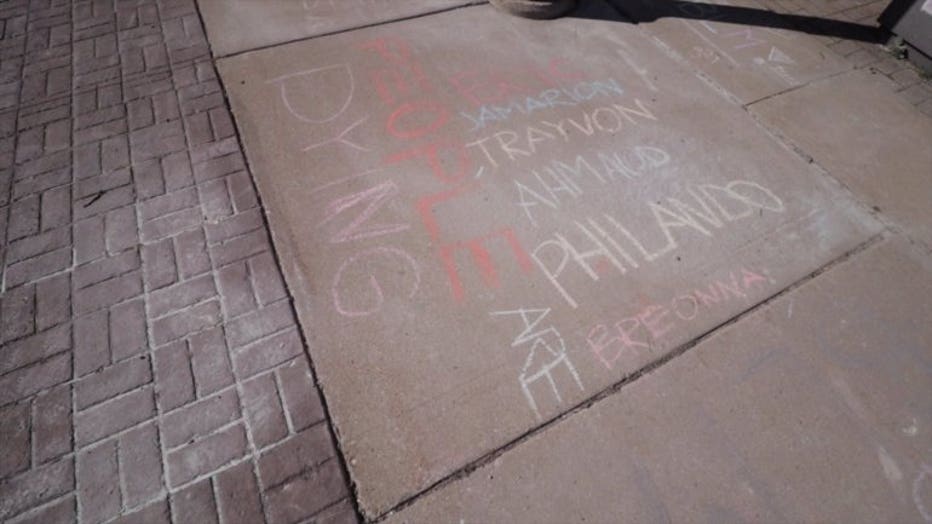 PEOPLE
ARE
DYING
ERIC
JAMARION
TRAYVON
AHMAUD
PHILANDO
BREONNA